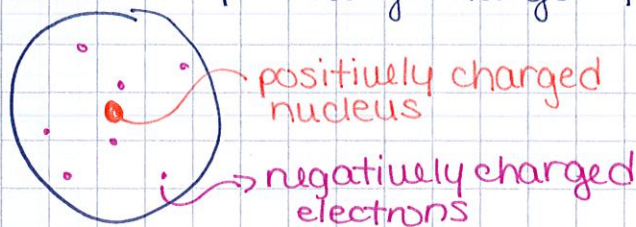 positively charged
nucleus
negatively charged
electrons